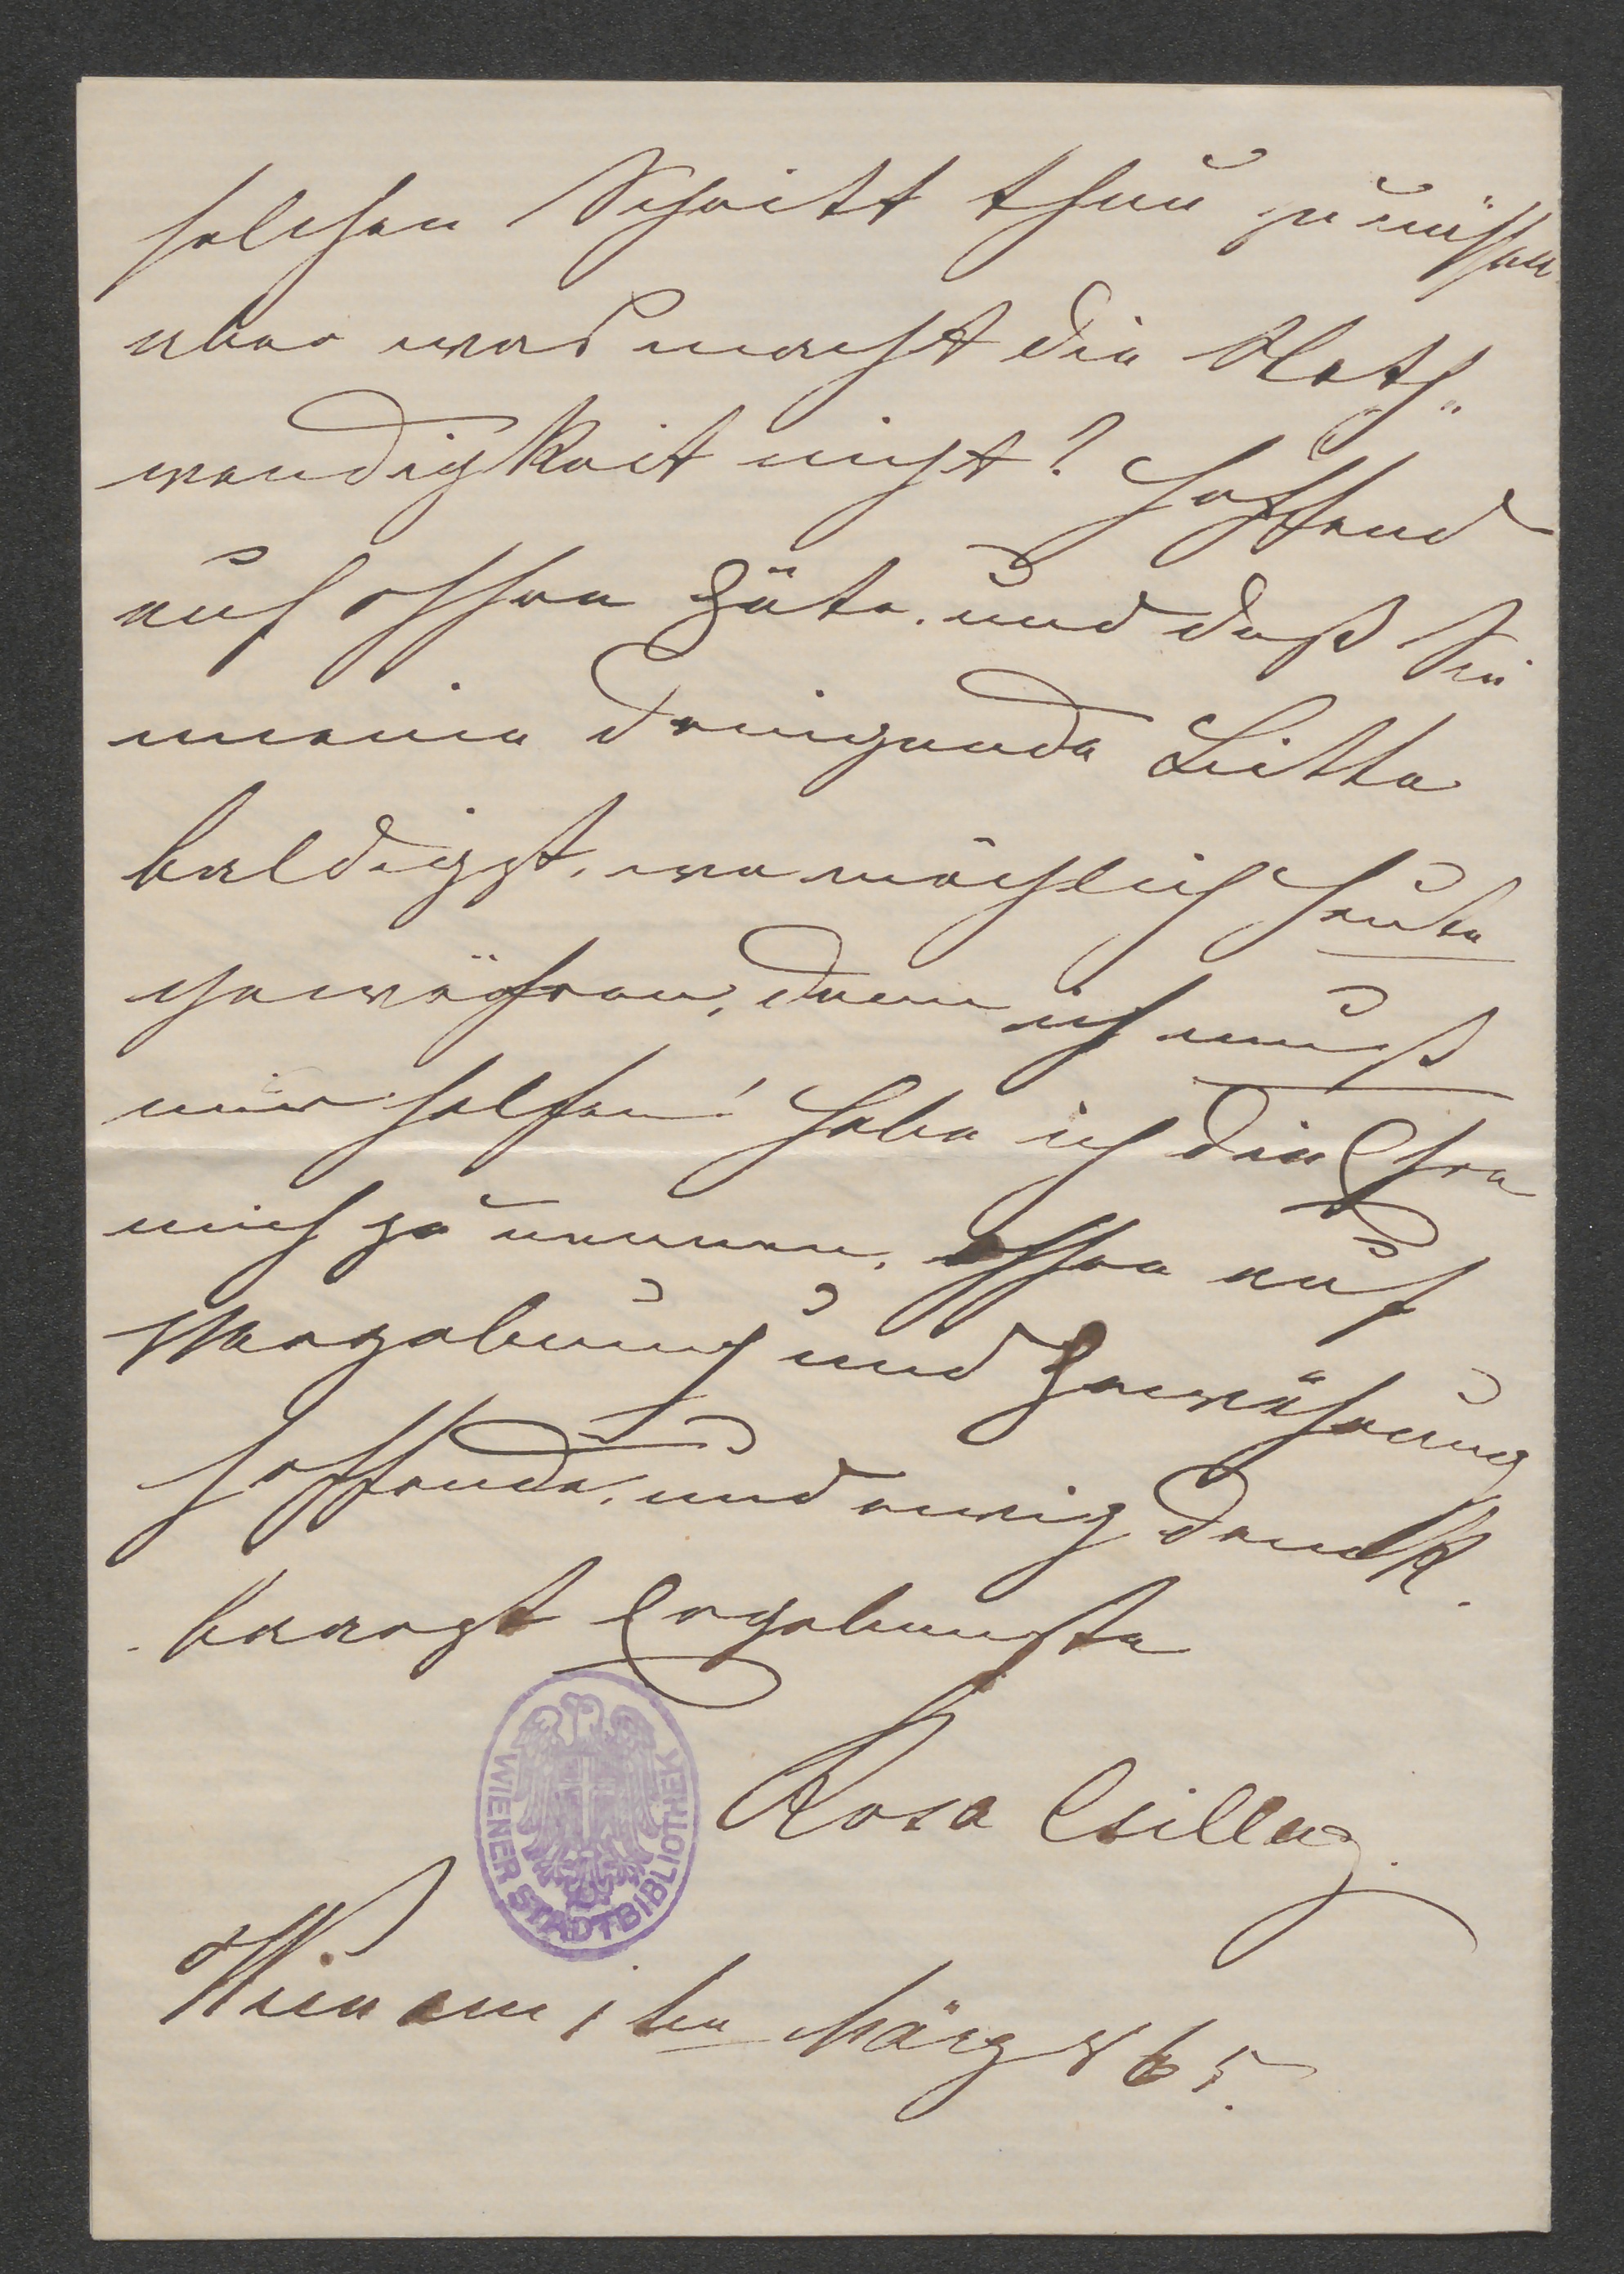 solchen Schritt thun zu müssen
aber was macht die Noth„
wendigkeit nicht? Hoffend
auf Ihre Güte, und daß Sie
meine dringende Bitte
baldigst, wo möglich heute
gewähren, denn ich muß
mir helfen! Habe ich die Ehre
mich zu nennen, Ihre auf
Vergebung und Gewährung
hoffende, und ewig dank.
. barast Ergebenste
Rosa Csillag.
WIENER STADTBIBLIOTHEK
Wien am 1ten März 865.